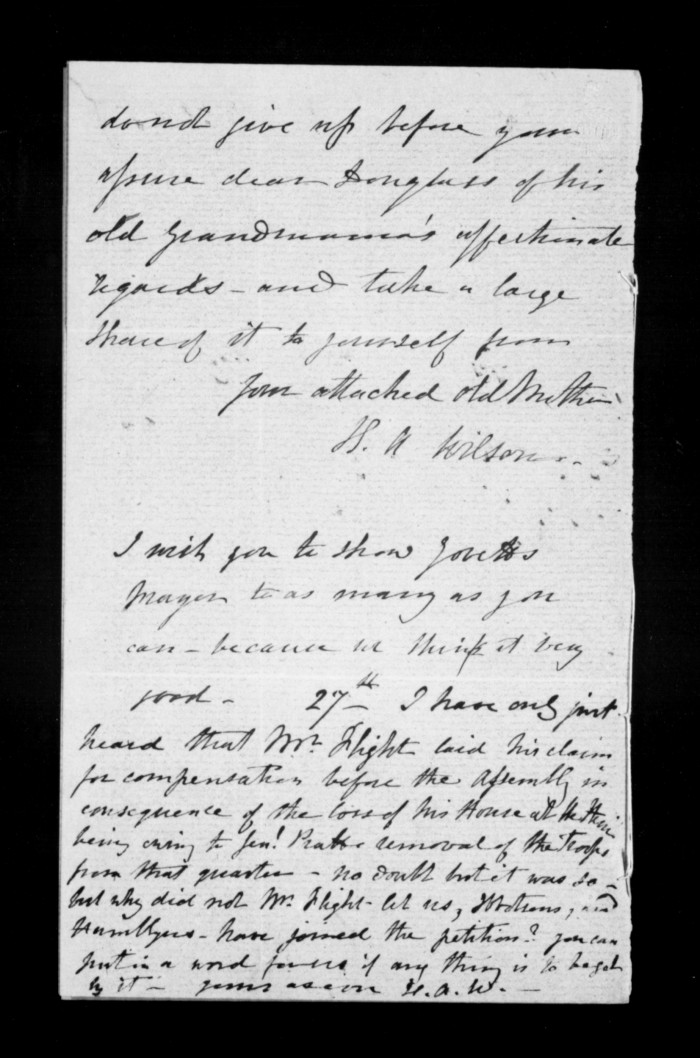 do not give up before you
assure dear Douglass of his
old Grandmama's affectionate
regards - and take a large
share of it to yourself from
your attached old Mother
H. A Wilson -
I wish you to show
to as many as you
can - because we think it very
good - 27th I have only just
heard that Mr Flight laid his claim
for compensation before the Assembly in
consequence of the loss of his House at the
being owing to Genl Pratts removal of the Troops
from that quarter - no doubt but it was so -
but why did not Mr Flight let us, and
- have joined the petition? you can
put in a word for us if any thing is to be got
by it - yours as ever H. A. W. -